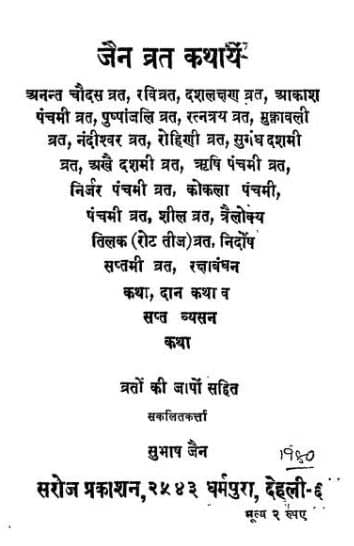 जैन व्रत कथायें
अनन्त चौदस व्रत, रविव्रत, दशलक्षण व्रत, आकाश
पंचमी व्रत, पुष्पांजलि व्रत, रत्नत्रय व्रत, मुक्तावली
व्रत, नंदीश्वर व्रत, रोहिणी व्रत, सुगंध दशमी
व्रत, अखै दशमी व्रत, ऋषि पंचमी व्रत,
निर्जर पंचमी व्रत, कोकला पंचमी,
पंचमी व्रत, शील व्रत, त्रैलोक्य
तिलक (रोट तीज)व्रत, निर्दोष
सप्तमी व्रत, रक्षाबंधन
कथा, दान कथा व
सप्त व्यसन
कथा
व्रतों की जापों सहित
सकलितकर्त्ता
सुभाष जैन
१९८०
सरोज प्रकाशन, २५४३ धर्मपुरा, देहली-६
मूल्य २ रुपए